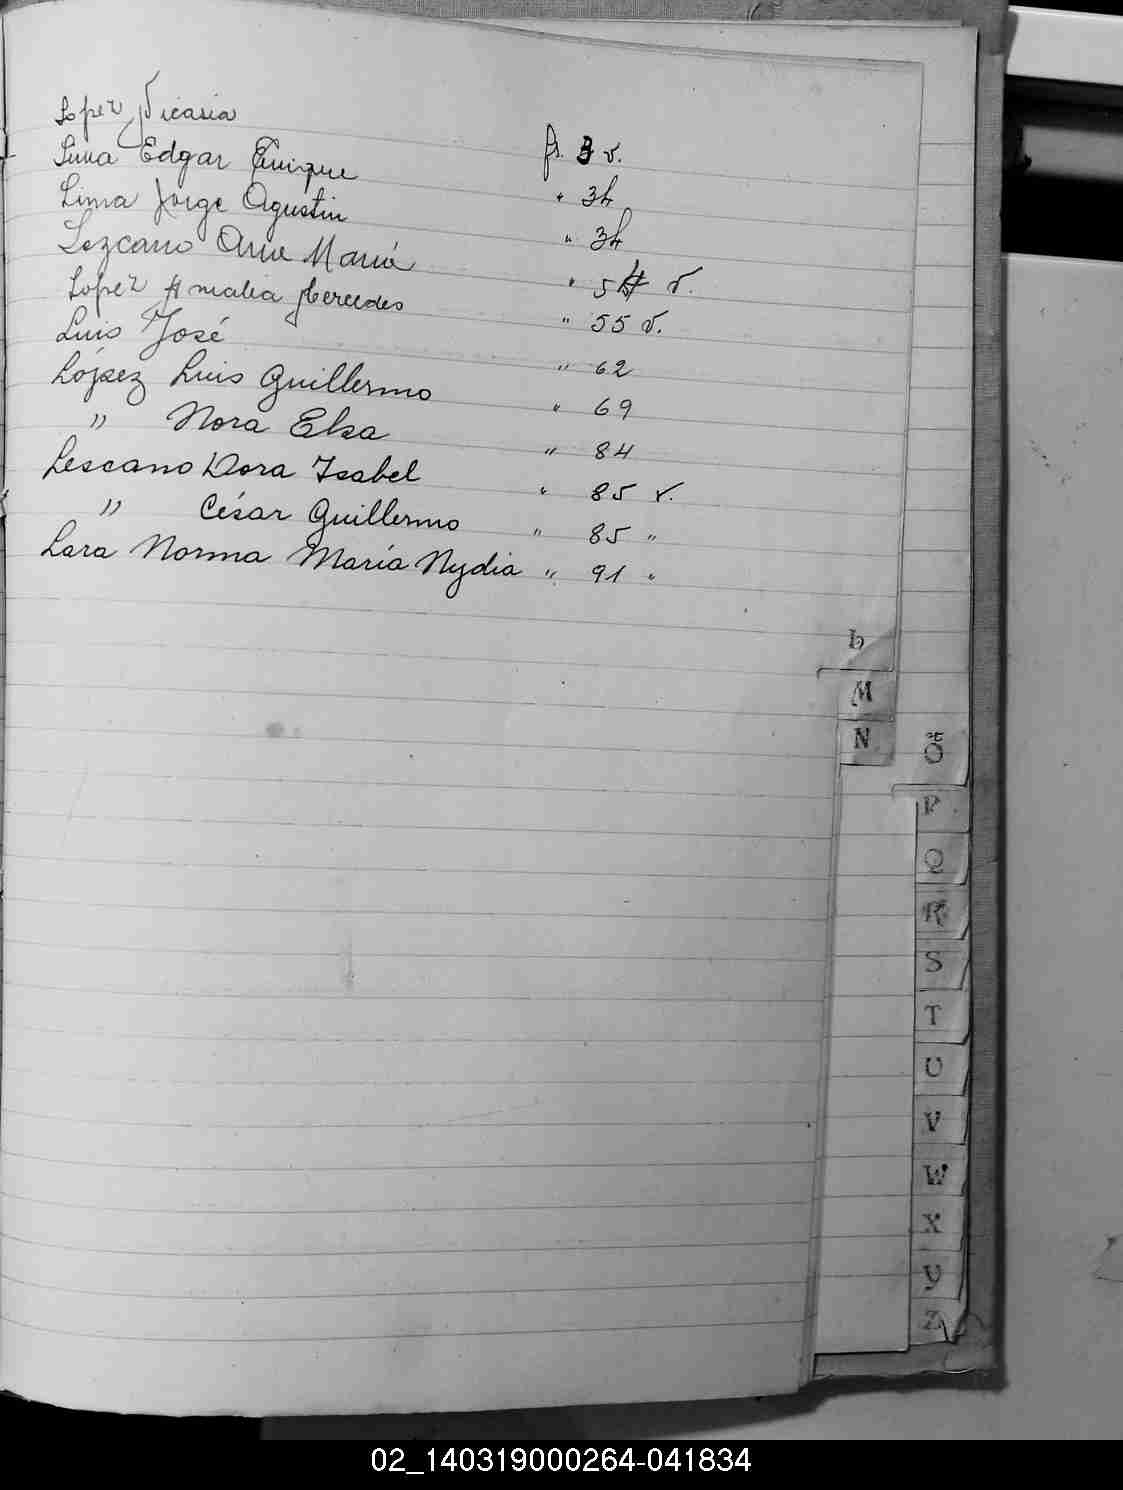 Lopez Nicasia fs. 3 v.
Luna Edgar Enrique " 34
Lima Jorge Agustin " 34
Lezcano Ana María " 54 v.
Lopez Amalia Mercedes " 55 v.
Luis José " 62
López Luis Guillermo " 69
" Nora Elsa " 84
Lescano Dora Isabel " 85 v.
" César Guillermo " 85 "
Lara Norma María Nydia " 91 "
L
M
N
O
P
Q
R
S
T
U
V
W
X
Y
Z
02_140319000264-041834